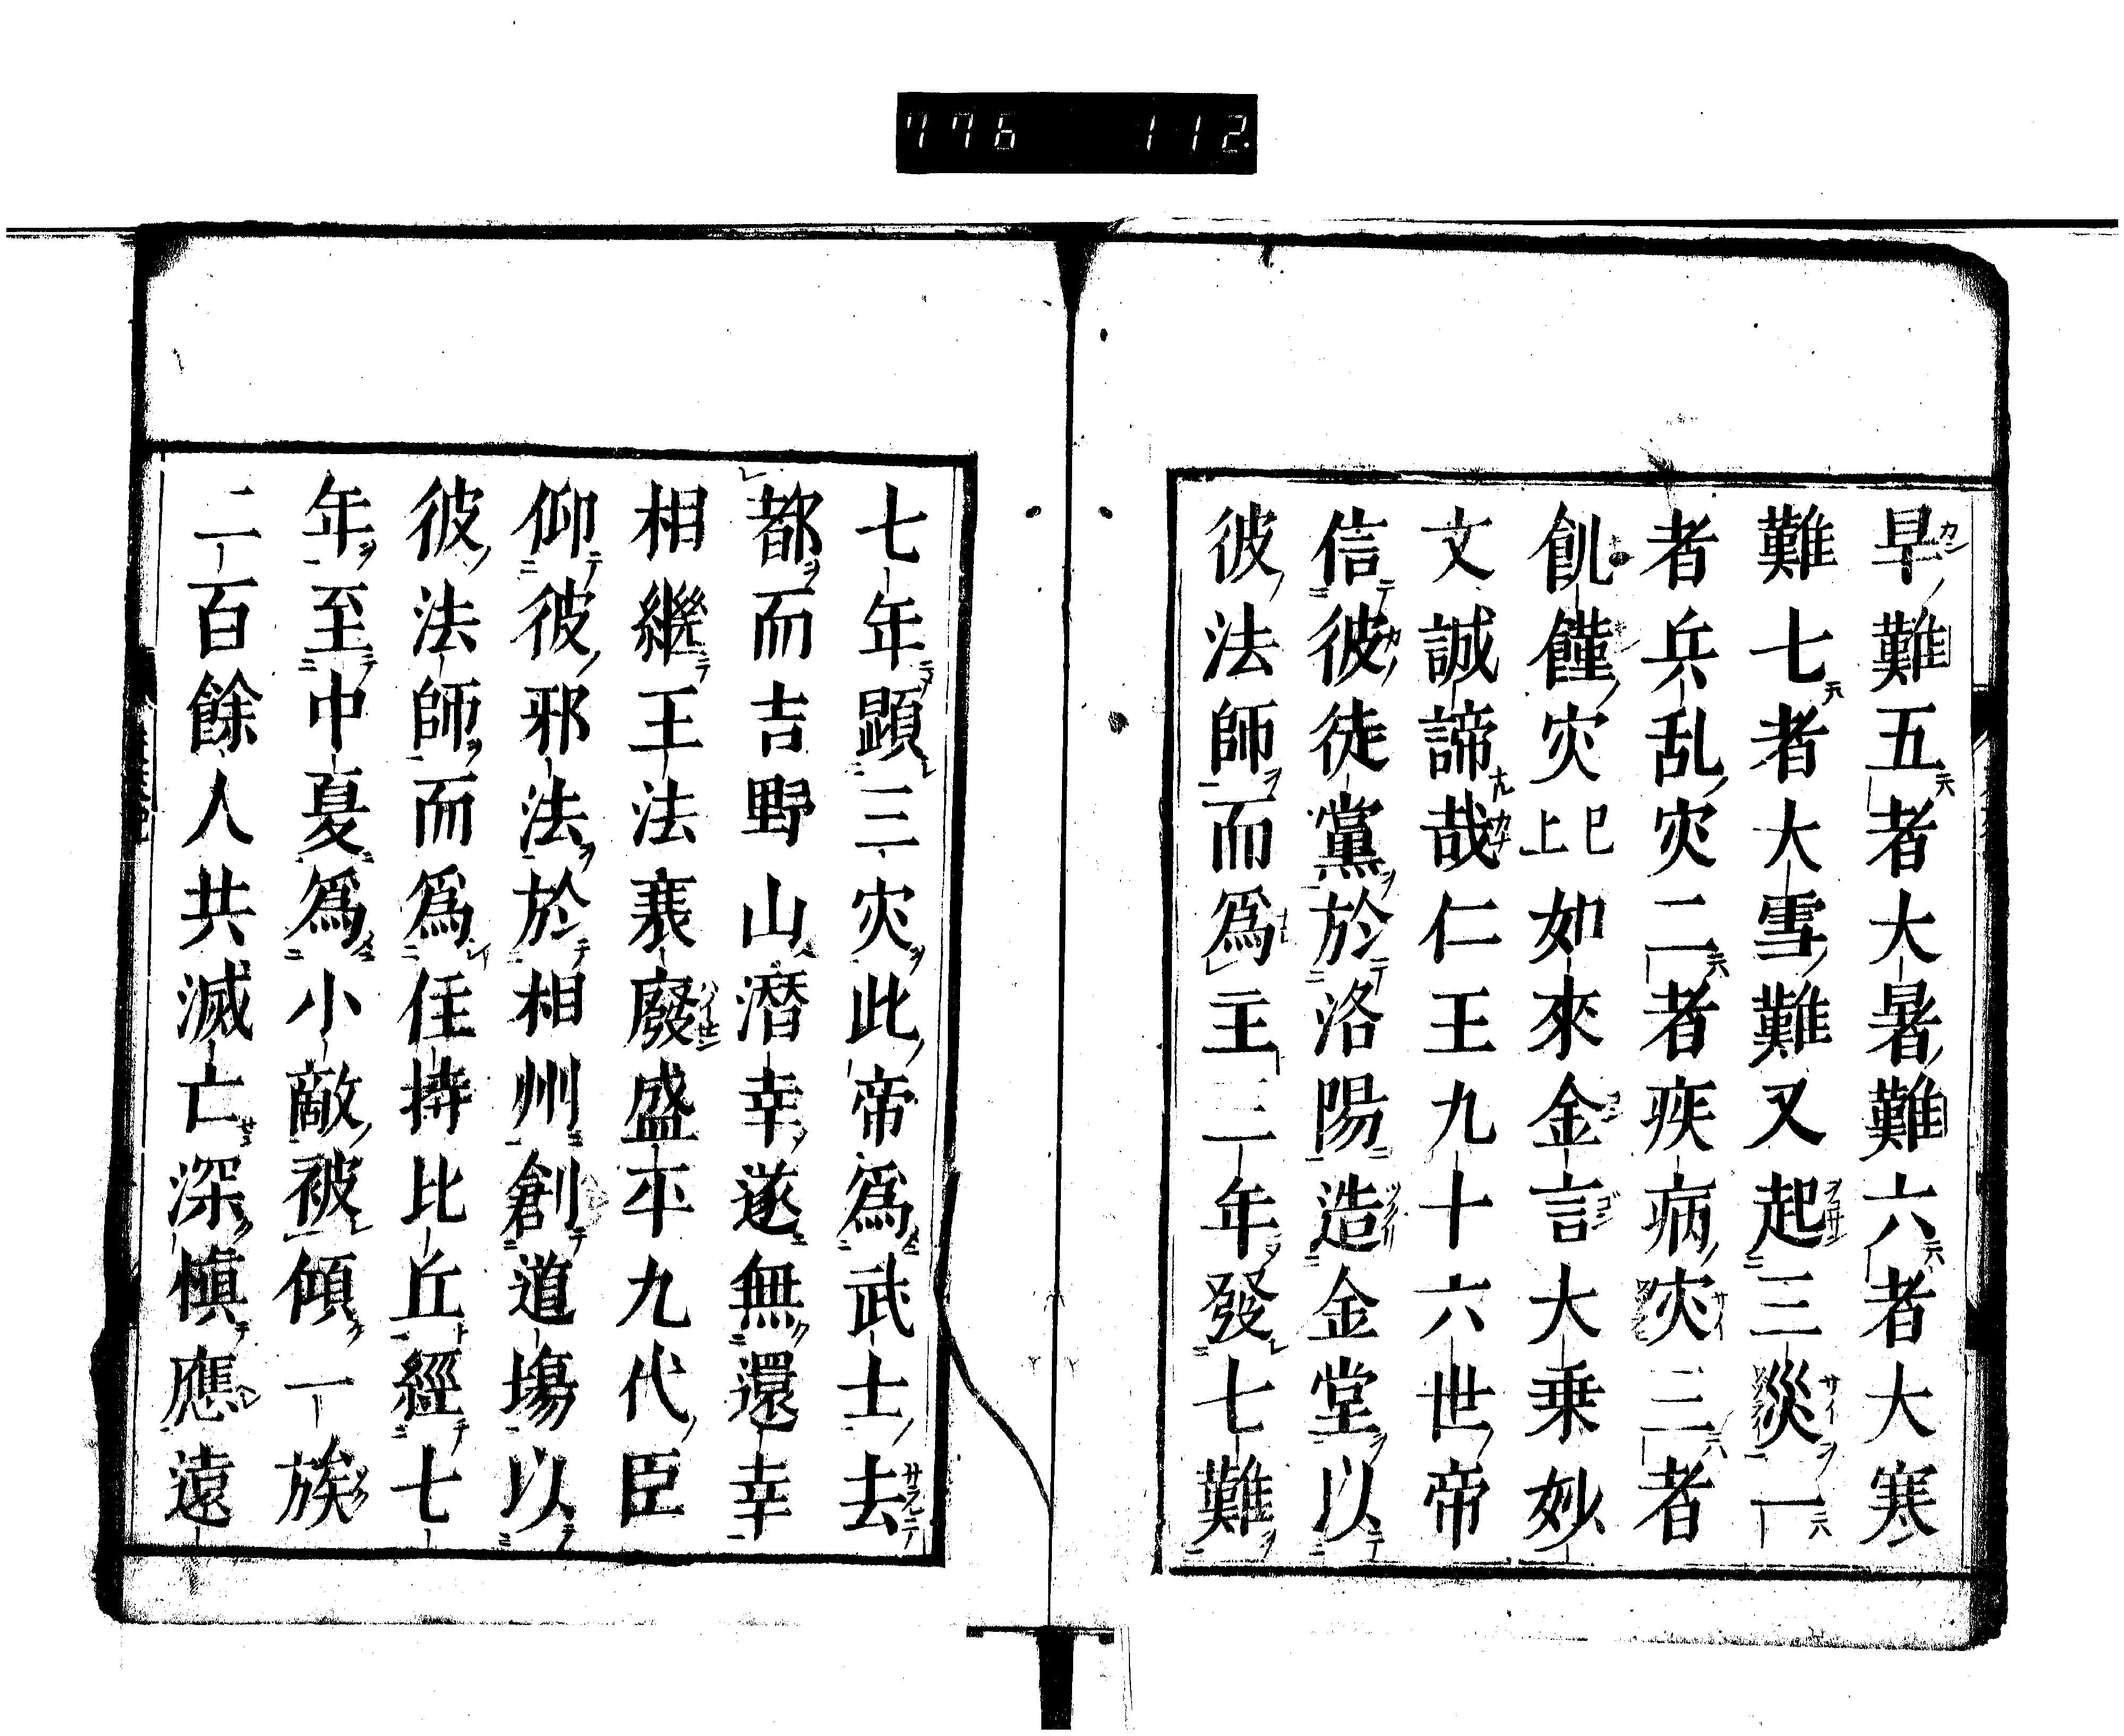 776 112.
旱難五者大暑難六者大寒
難七者大雪難又起三災一
者兵乱灾二者疾病灾三者
飢饉灾已上如來金言大乗妙
文誠諦哉仁王九十六世帝
信彼徒黨於洛陽造金堂以
彼法師而爲主三年發七難
七年顕三灾此帝爲武士去
都而吉野山潜幸遂無還幸
相繼王法衰廢盛平九代臣
仰彼邪法於相州創道場以
彼法師而爲住持比丘經七
年至中夏爲小敵被傾一族
二百餘人共滅亡深慎應遠